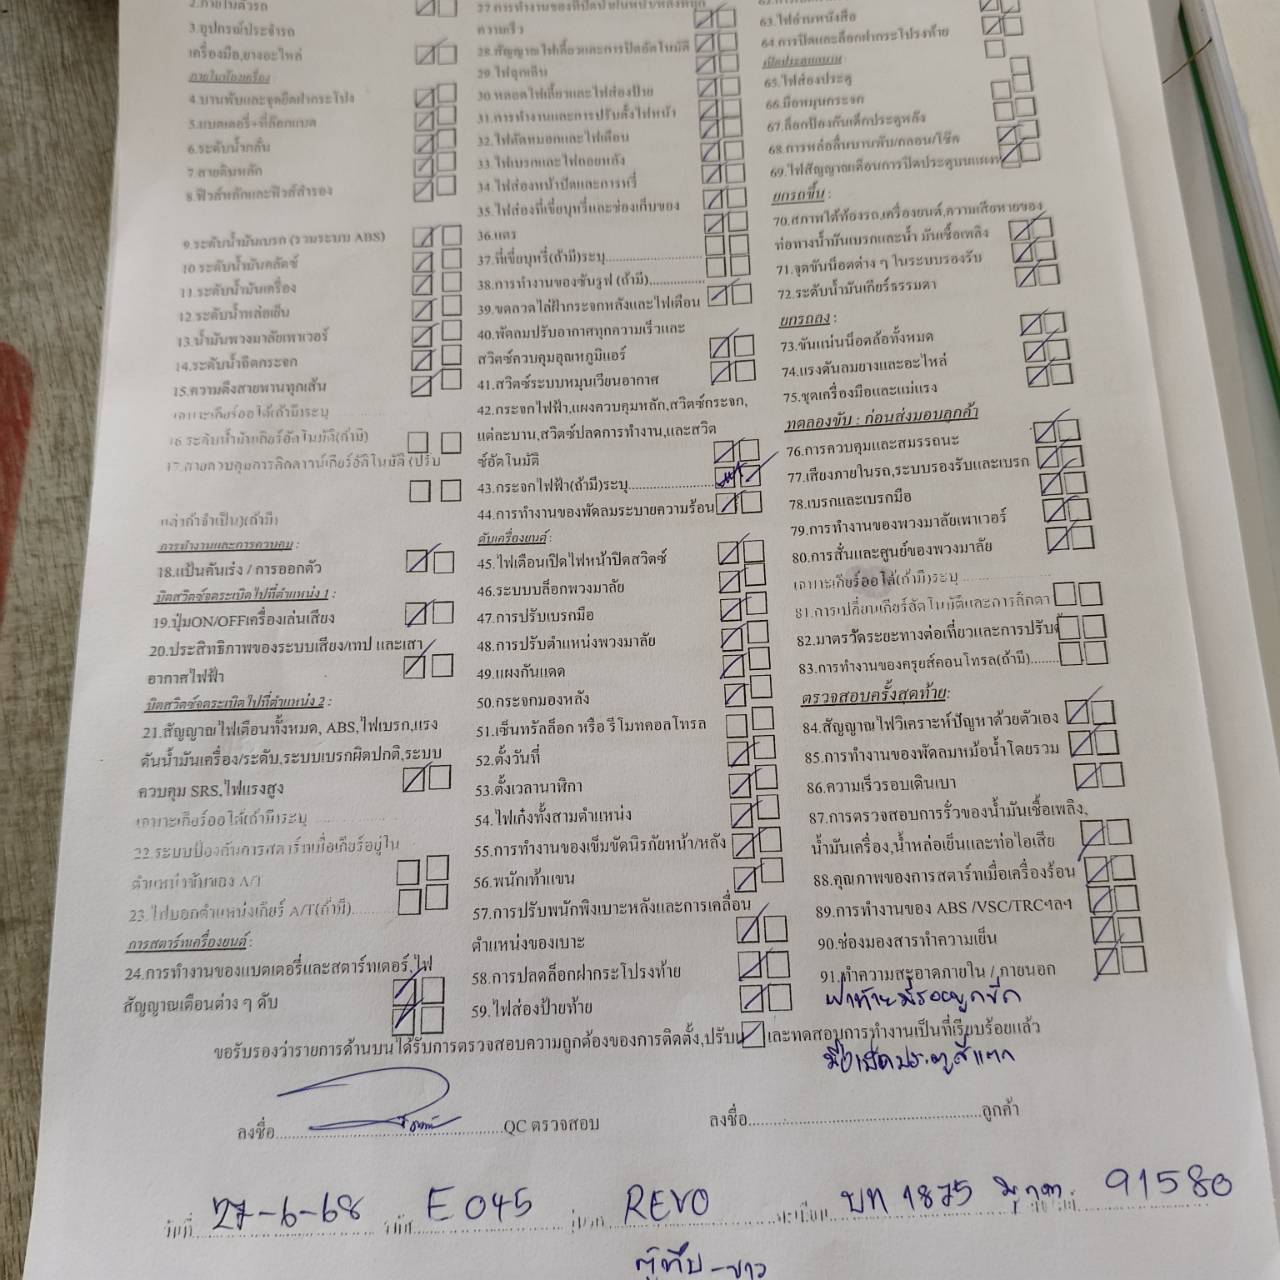 2.ภายในตัวรถ
3.อุปกรณ์ประจำรถ
เครื่องมือ,ยางอะไหล่
ภายในห้องเครื่อง
4.บานพับและจุดยึดฝากระโปรง
5.แบตเตอรี่+ที่ล๊อกแบต
6.ระดับน้ำกลั่น
7.สายดินหลัก
8.ฟิวส์หลักและฟิวส์สำรอง
9.ระดับน้ำมันเบรก (รวมระบบ ABS)
10.ระดับน้ำมันคลัตช์
11.ระดับน้ำมันเครื่อง
12.ระดับน้ำหล่อเย็น
13.น้ำมันพวงมาลัยเพาเวอร์
14.ระดับน้ำฉีดกระจก
15.ความตึงสายพานทุกเส้น
เฉพาะเกียร์ออโต้(ถ้ามี)ระบุ
16.ระดับน้ำมันเกียร์อัตโนมัติ(ถ้ามี)
17.สายควบคุมการคิกดาวน์เกียร์อัตโนมัติ (ปรับ
แต่งถ้าจำเป็น)(ถ้ามี)
การทำงานและการควบคุม :
18.แป้นคันเร่ง / การออกตัว
บิดสวิตซ์จุดระเบิดไปที่ตำแหน่ง 1 :
19.ปุ่มON/OFFเครื่องเล่นเสียง
20.ประสิทธิภาพของระบบเสียง/เทป และเสา
อากาศไฟฟ้า
บิดสวิตซ์จุดระเบิดไปที่ตำแหน่ง 2 :
21.สัญญาณไฟเตือนทั้งหมด, ABS,ไฟเบรก,แรง
ดันน้ำมันเครื่อง/ระดับ,ระบบเบรกผิดปกติ,ระบบ
ควบคุม SRS,ไฟแรงสูง
เฉพาะเกียร์ออโต้(ถ้ามี)ระบุ
22.ระบบป้องกันการสตาร์ทเมื่อเกียร์อยู่ใน
ตำแหน่งขับของ A/T
23.ไฟบอกตำแหน่งเกียร์ A/T(ถ้ามี)..........
การสตาร์ทเครื่องยนต์ :
24.การทำงานของแบตเตอรี่และสตาร์ทเตอร์,ไฟ
สัญญาณเตือนต่าง ๆ ดับ
27.การทำงานของที่ปัดน้ำฝนหน้า/หลังที่ทุก
ความเร็ว
28.สัญญาณไฟเลี้ยวและการปิดอัตโนมัติ
29.ไฟฉุกเฉิน
30.หลอดไฟเลี้ยวและไฟส่องป้าย
31.การทำงานและการปรับตั้งไฟหน้า
32.ไฟตัดหมอกและไฟเตือน
33.ไฟเบรกและไฟถอยหลัง
34.ไฟส่องหน้าปัดและการหรี่
35.ไฟส่องที่เขี่ยบุหรี่และช่องเก็บของ
36.แตร
37.ที่เขี่ยบุหรี่(ถ้ามี)ระบุ......................
38.การทำงานของซันรูฟ (ถ้ามี)..............
39.ขดลวดไล่ฝ้ากระจกหลังและไฟเตือน
40.พัดลมปรับอากาศทุกความเร็วและ
สวิตซ์ควบคุมอุณหภูมิแอร์
41.สวิตซ์ระบบหมุนเวียนอากาศ
42.กระจกไฟฟ้า,แผงควบคุมหลัก,สวิตซ์กระจก,
แต่ละบาน,สวิตซ์ปลดการทำงาน,และสวิต
ซ์อัตโนมัติ
43.กระจกไฟฟ้า(ถ้ามี)ระบุ......................
44.การทำงานของพัดลมระบายความร้อน
ดับเครื่องยนต์ :
45.ไฟเตือนเปิดไฟหน้าปิดสวิตซ์
46.ระบบบล็อกพวงมาลัย
47.การปรับเบรกมือ
48.การปรับตำแหน่งพวงมาลัย
49.แผงกันแดด
50.กระจกมองหลัง
51.เซ็นทรัลล็อก หรือ รีโมทคอลโทรล
52.ตั้งวันที่
53.ตั้งเวลานาฬิกา
54.ไฟเก๋งทั้งสามตำแหน่ง
55.การทำงานของเข็มขัดนิรภัยหน้า/หลัง
56.พนักเท้าแขน
57.การปรับพนักพิงเบาะหลังและการเคลื่อน
ตำแหน่งของเบาะ
58.การปลดล็อกฝากระโปรงท้าย
59.ไฟส่องป้ายท้าย
63.ไฟอ่านหนังสือ
64.การปิดและล็อกฝากระโปรงท้าย
เปิดประตูทุกบาน
65.ไฟส่องประตู
66.มือหมุนกระจก
67.ล็อกป้องกันเด็กประตูหลัง
68.การหล่อลื่นบานพับ/กลอน/โช๊ค
69.ไฟสัญญาณเตือนการปิดประตูบนแผง
ยกรถขึ้น :
70.สภาพใต้ท้องรถ,เครื่องยนต์,ความเสียหายของ
ท่อทางน้ำมันเบรกและน้ำ มันเชื้อเพลิง
71.จุดขันน็อตต่าง ๆ ในระบบรองรับ
72.ระดับน้ำมันเกียร์ธรรมดา
ยกรถลง :
73.ขันแน่นน็อตล้อทั้งหมด
74.แรงดันลมยางและอะไหล่
75.ชุดเครื่องมือและแม่แรง
ทดลองขับ : ก่อนส่งมอบลูกค้า
76.การควบคุมและสมรรถนะ
77.เสียงภายในรถ,ระบบรองรับและเบรก
78.เบรกและเบรกมือ
79.การทำงานของพวงมาลัยเพาเวอร์
80.การสั่นและศูนย์ของพวงมาลัย
เฉพาะเกียร์ออโต้(ถ้ามี)ระบุ
81.การเปลี่ยนเกียร์อัตโนมัติและการคิกดา
82.มาตรวัดระยะทางต่อเที่ยวและการปรับตั้
83.การทำงานของครุยส์คอนโทรล(ถ้ามี)........
ตรวจสอบครั้งสุดท้าย:
84.สัญญาณไฟวิเคราะห์ปัญหาด้วยตัวเอง
85.การทำงานของพัดลมหม้อน้ำโดยรวม
86.ความเร็วรอบเดินเบา
87.การตรวจสอบการรั่วของน้ำมันเชื้อเพลิง,
น้ำมันเครื่อง,น้ำหล่อเย็นและท่อไอเสีย
88.คุณภาพของการสตาร์ทเมื่อเครื่องร้อน
89.การทำงานของ ABS /VSC/TRCฯลฯ
90.ช่องมองสารทำความเย็น
91.ทำความสะอาดภายใน / ภายนอก
ฝาท้ายมีรอยขูดขีด
ขอรับรองว่ารายการด้านบนได้รับการตรวจสอบความถูกต้องของการติดตั้ง,ปรับ และทดสอบการทำงานเป็นที่เรียบร้อยแล้ว
มือเปิดประตูสีแตก
ลงชื่อ..................................QC ตรวจสอบ
ลงชื่อ..................................ลูกค้า
วันที่ 27-6-68 รหัส E045 รุ่นรถ REVO ทะเบียน บท 1875 มุกดา 91580
ตู้ทึบ-ขาว